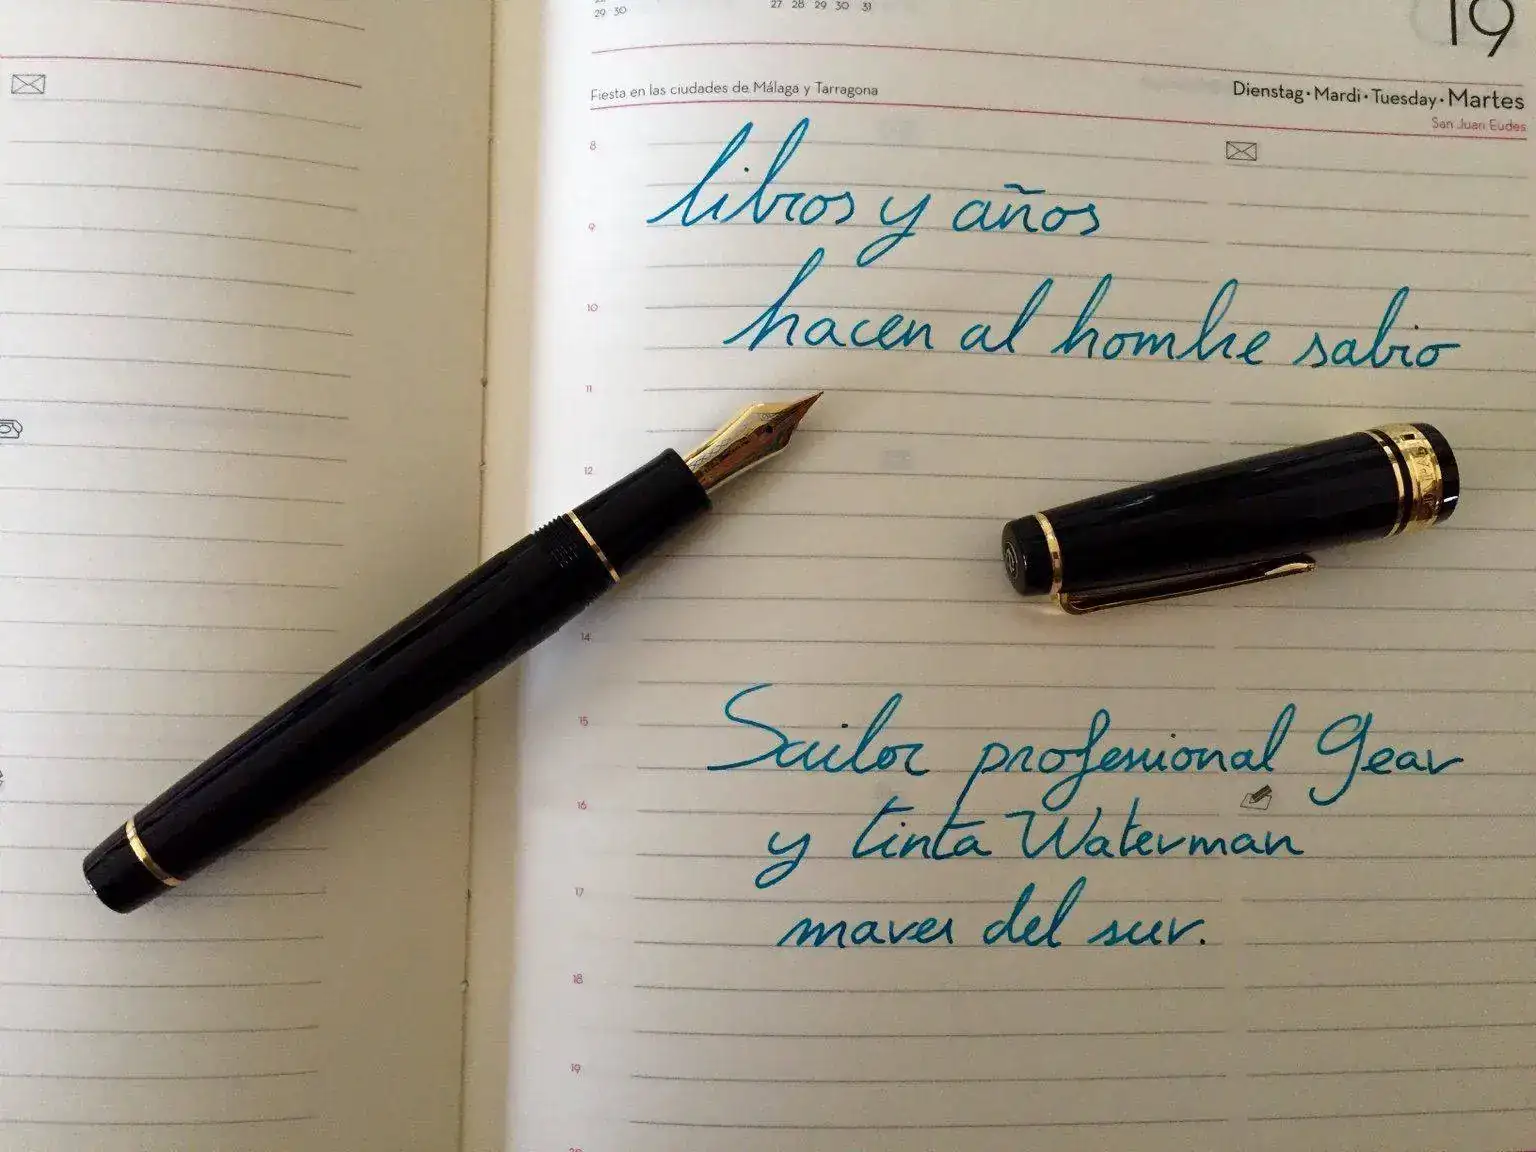 29 30
27 28 29 30 31
19
Fiesta en las ciudades de Málaga y Tarragona
Dienstag · Mardi · Tuesday · Martes
San Juan Eudes
8
libros y años
9
10
hacen al hombre sabio
11
12
14
15
Sailor profesional Gear
16
y tinta Waterman
17
mares del sur.
18
19
20